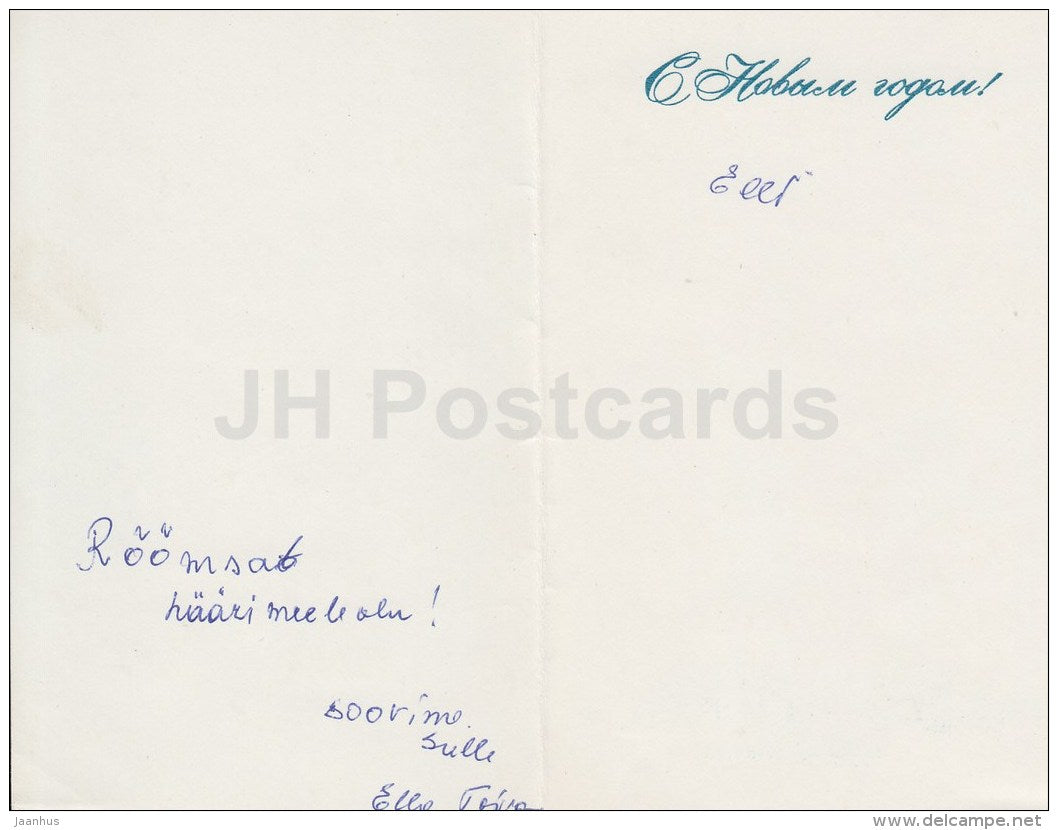 С Новым годом!
Eeli
JH Postcards
Rõõmsat
näärimeeleolu!
soovime
Sulle
Elle Toivo
Jaanhus
www.delcampe.net